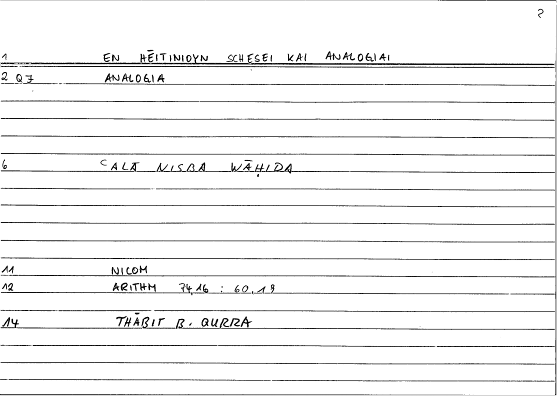 ?
1 EN HĒITINIOYN SCHESEI KAI ANALOGIAI
2 Q7 ANALOGIA
6 ʿALĀ NISBA WĀḤIDA
11 NICOM
12 ARITHM 74,16 : 60,19
14 THĀBIT B. QURRA